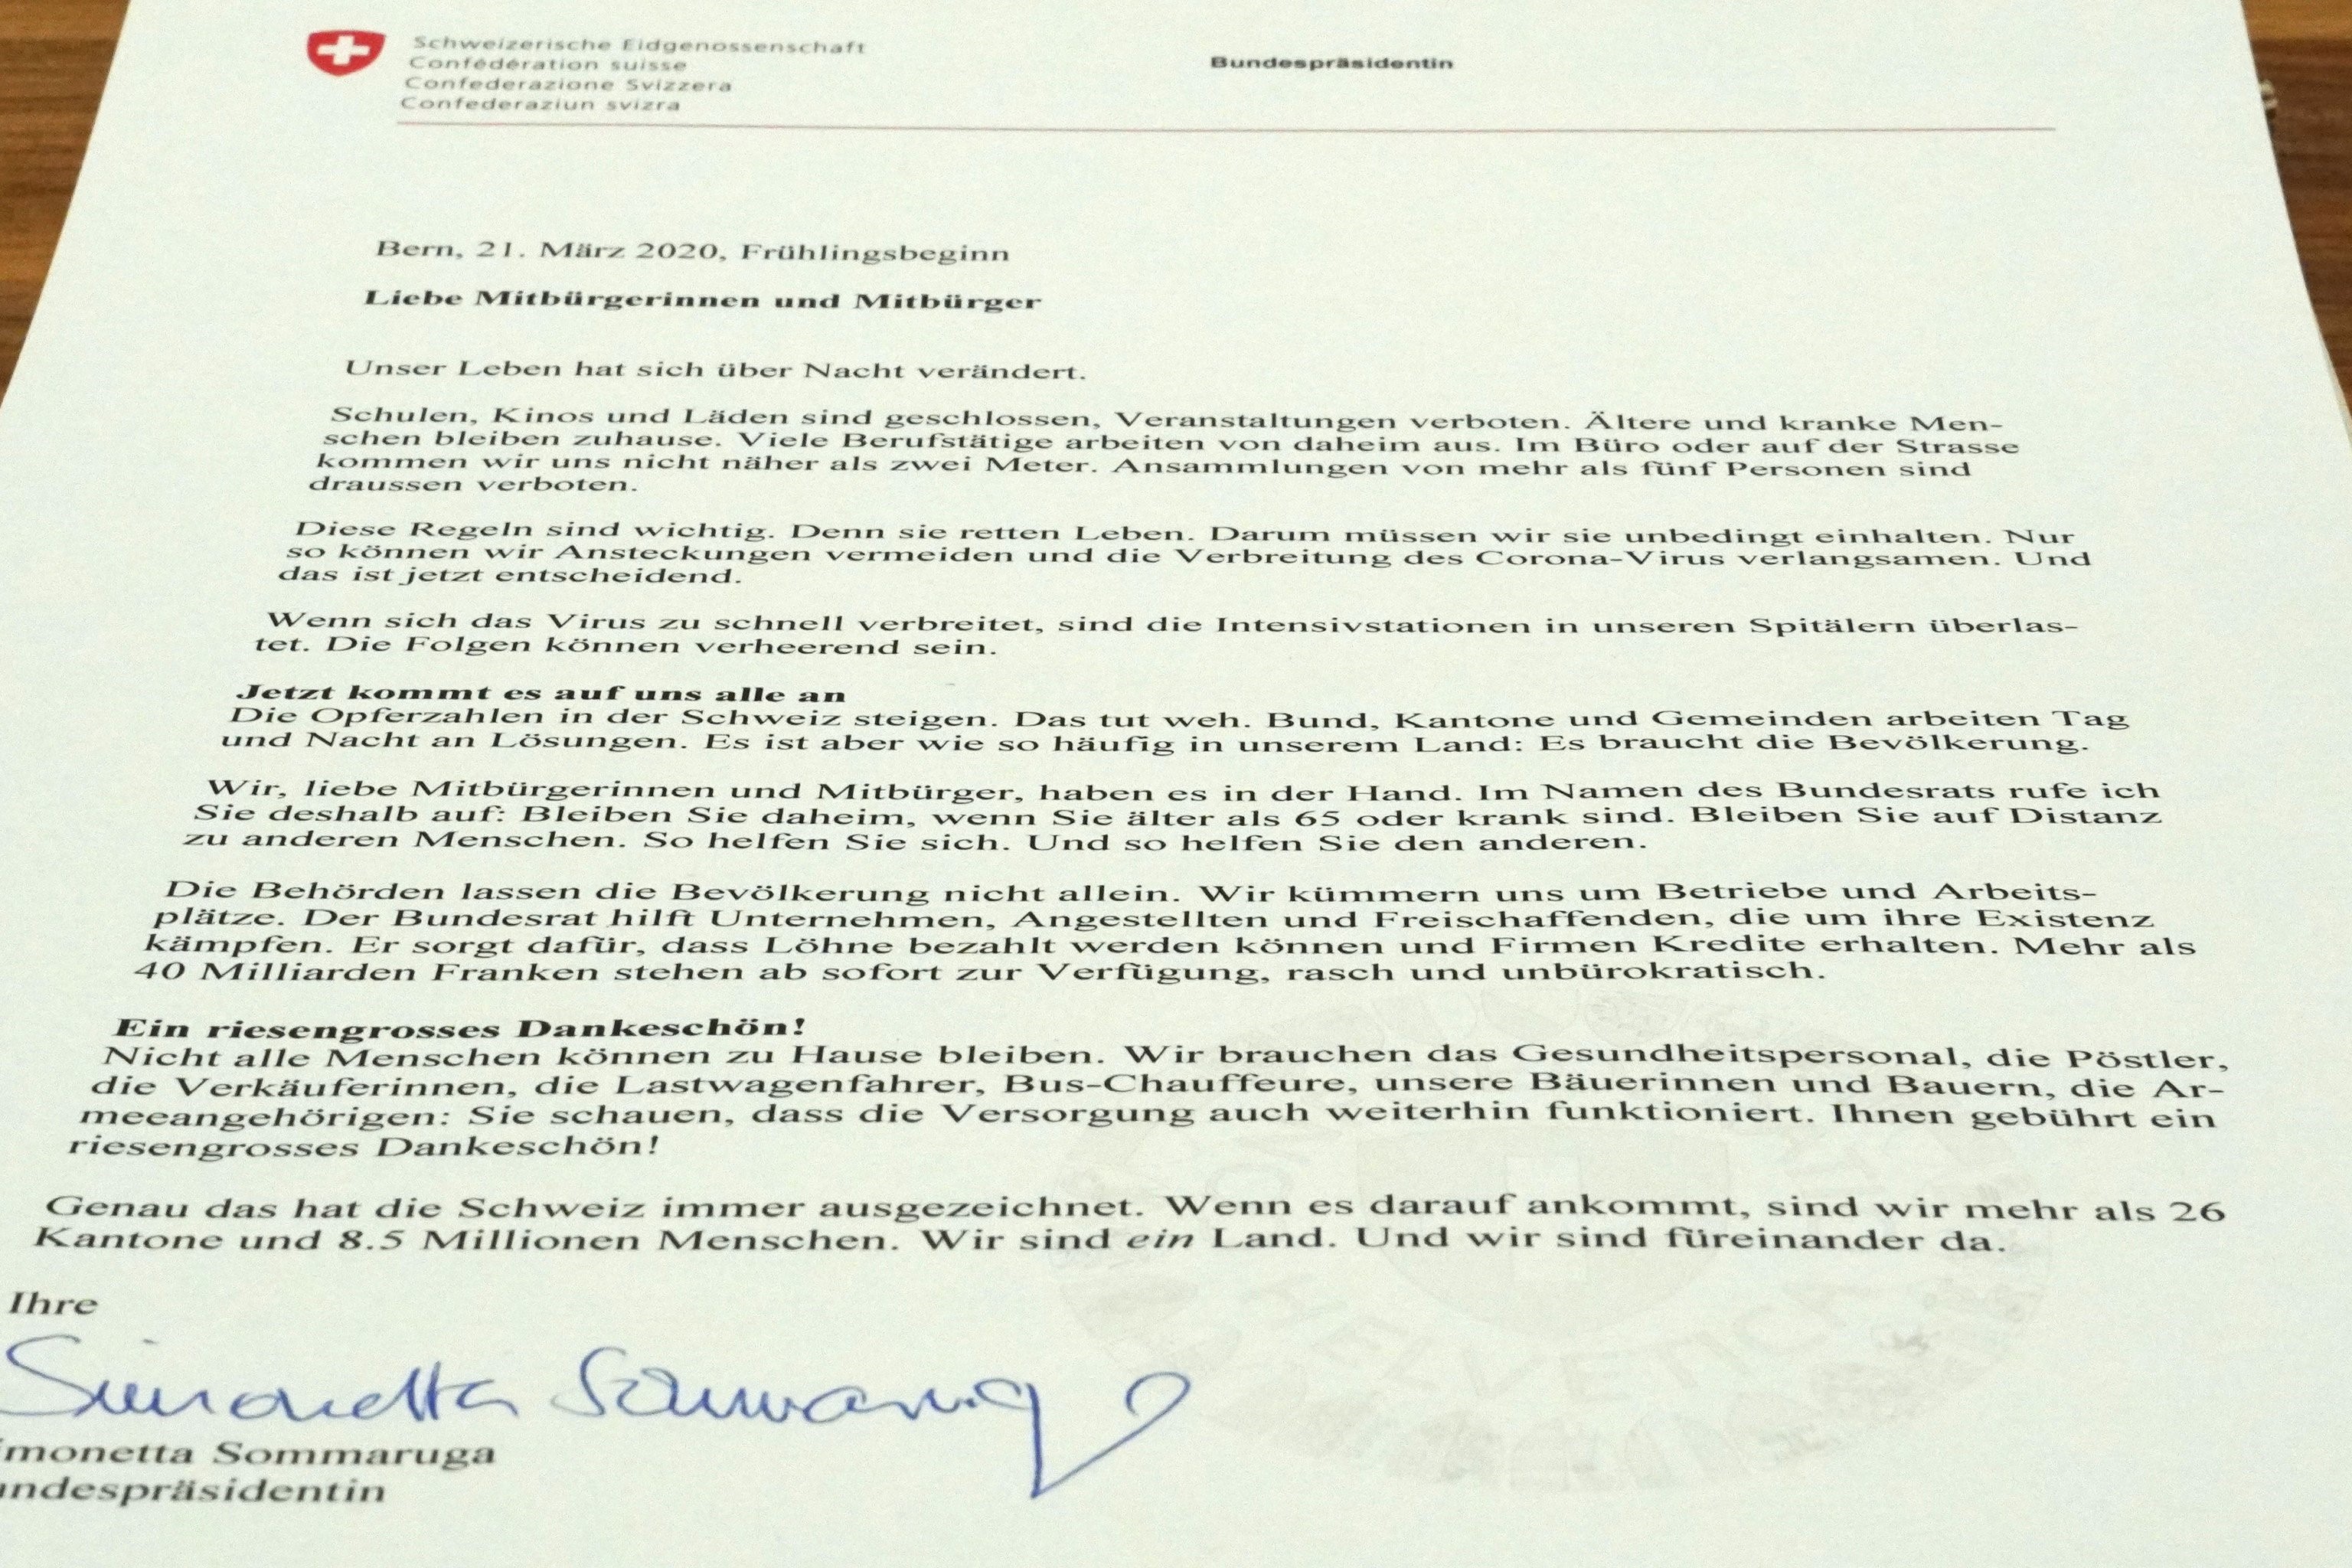 Schweizerische Eidgenossenschaft
Confédération suisse
Confederazione Svizzera
Confederaziun svizra
Bundespräsidentin
Bern, 21. März 2020, Frühlingsbeginn
Liebe Mitbürgerinnen und Mitbürger
Unser Leben hat sich über Nacht verändert.
Schulen, Kinos und Läden sind geschlossen, Veranstaltungen verboten. Ältere und kranke Men-
schen bleiben zuhause. Viele Berufstätige arbeiten von daheim aus. Im Büro oder auf der Strasse
kommen wir uns nicht näher als zwei Meter. Ansammlungen von mehr als fünf Personen sind
draussen verboten.
Diese Regeln sind wichtig. Denn sie retten Leben. Darum müssen wir sie unbedingt einhalten. Nur
so können wir Ansteckungen vermeiden und die Verbreitung des Corona-Virus verlangsamen. Und
das ist jetzt entscheidend.
Wenn sich das Virus zu schnell verbreitet, sind die Intensivstationen in unseren Spitälern überlas-
tet. Die Folgen können verheerend sein.
Jetzt kommt es auf uns alle an
Die Opferzahlen in der Schweiz steigen. Das tut weh. Bund, Kantone und Gemeinden arbeiten Tag
und Nacht an Lösungen. Es ist aber wie so häufig in unserem Land: Es braucht die Bevölkerung.
Wir, liebe Mitbürgerinnen und Mitbürger, haben es in der Hand. Im Namen des Bundesrats rufe ich
Sie deshalb auf: Bleiben Sie daheim, wenn Sie älter als 65 oder krank sind. Bleiben Sie auf Distanz
zu anderen Menschen. So helfen Sie sich. Und so helfen Sie den anderen.
Die Behörden lassen die Bevölkerung nicht allein. Wir kümmern uns um Betriebe und Arbeits-
plätze. Der Bundesrat hilft Unternehmen, Angestellten und Freischaffenden, die um ihre Existenz
kämpfen. Er sorgt dafür, dass Löhne bezahlt werden können und Firmen Kredite erhalten. Mehr als
40 Milliarden Franken stehen ab sofort zur Verfügung, rasch und unbürokratisch.
Ein riesengrosses Dankeschön!
Nicht alle Menschen können zu Hause bleiben. Wir brauchen das Gesundheitspersonal, die Pöstler,
die Verkäuferinnen, die Lastwagenfahrer, Bus-Chauffeure, unsere Bäuerinnen und Bauern, die Ar-
meeangehörigen: Sie schauen, dass die Versorgung auch weiterhin funktioniert. Ihnen gebührt ein
riesengrosses Dankeschön!
Genau das hat die Schweiz immer ausgezeichnet. Wenn es darauf ankommt, sind wir mehr als 26
Kantone und 8.5 Millionen Menschen. Wir sind ein Land. Und wir sind füreinander da.
Ihre
Simonetta Sommaruga
imonetta Sommaruga
undespräsidentin